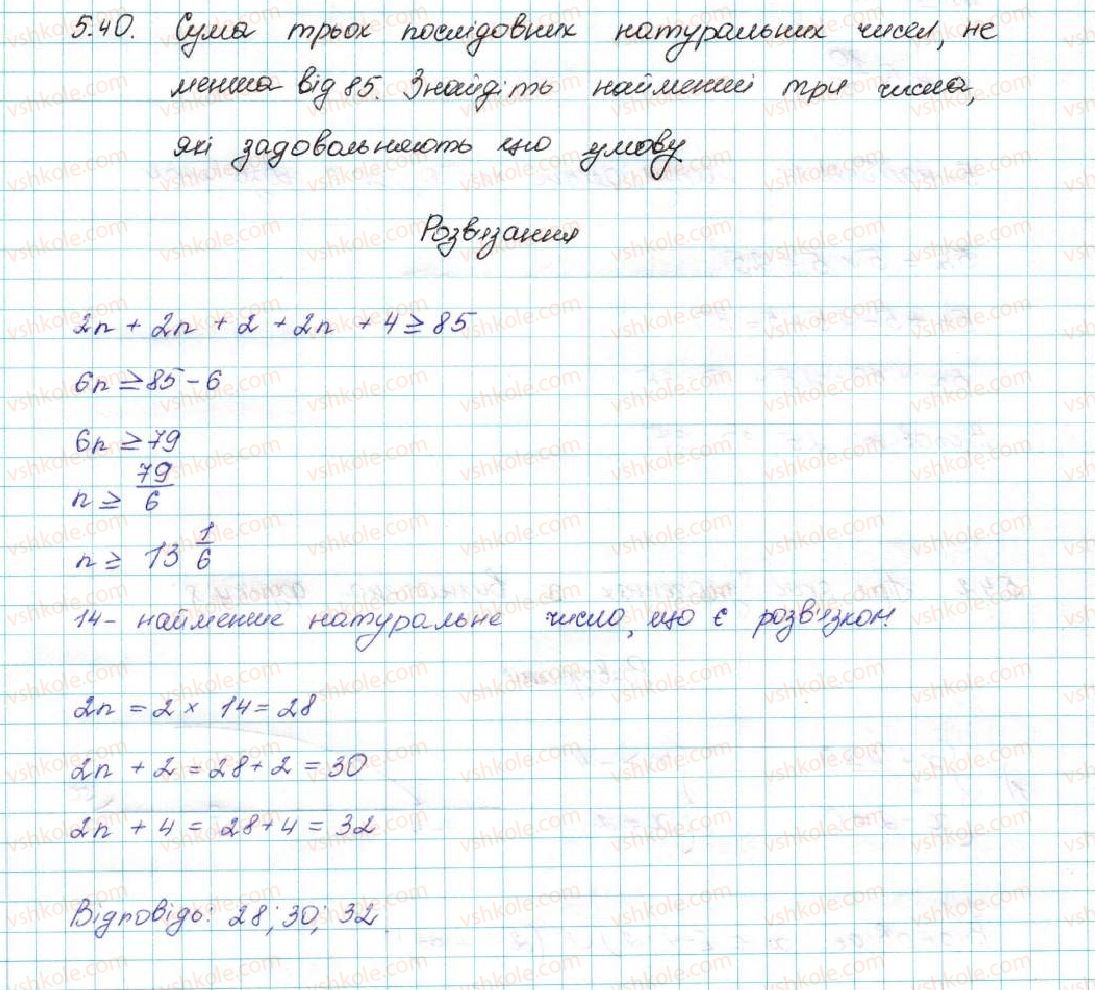 5.40. Сума трьох послідовних натуральних чисел, не
менша від 85. Знайдіть найменші три числа,
які задовольняють цю умову
Розв'язання
2n + 2n + 2 + 2n + 4 ≥ 85
6n ≥ 85 - 6
6n ≥ 79
n ≥ 79/6
n ≥ 13 1/6
14 - найменше натуральне число, що є розв'язком.
2n = 2 × 14 = 28
2n + 2 = 28 + 2 = 30
2n + 4 = 28 + 4 = 32
Відповідь: 28; 30; 32
vshkole.com